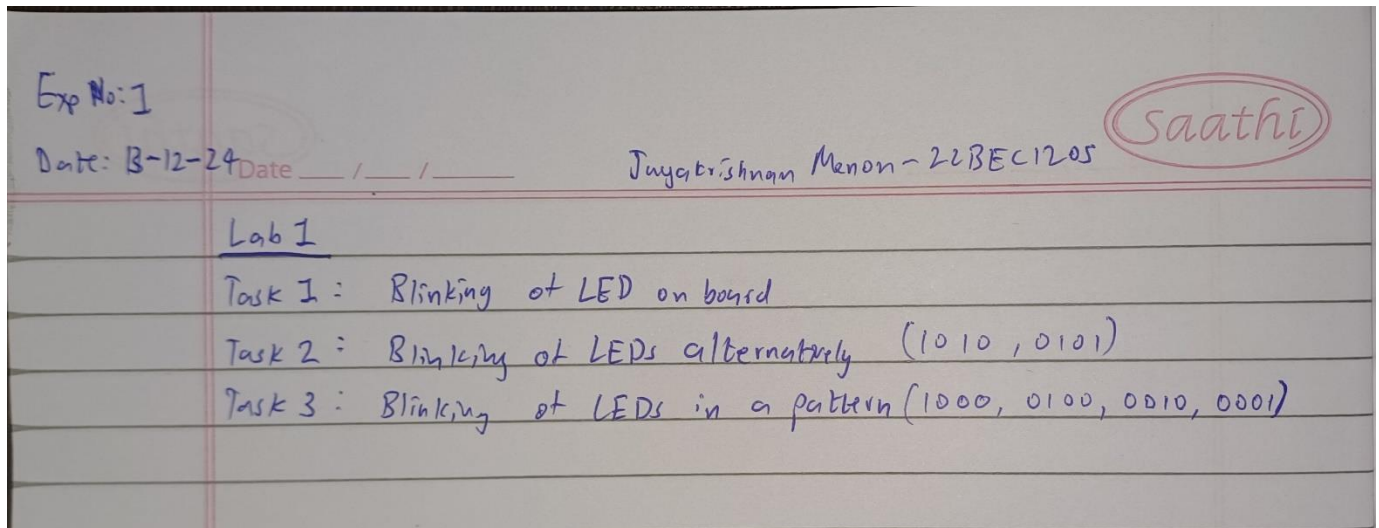 Exp No: 1
saathi
Date: 13-12-24 Date __/__/____ Jayakrishnan Menon - 22BEC1205
Lab 1
Task 1 : Blinking of LED on board
Task 2 : Blinking of LEDs alternatively (1010, 0101)
Task 3 : Blinking of LEDs in a pattern (1000, 0100, 0010, 0001)